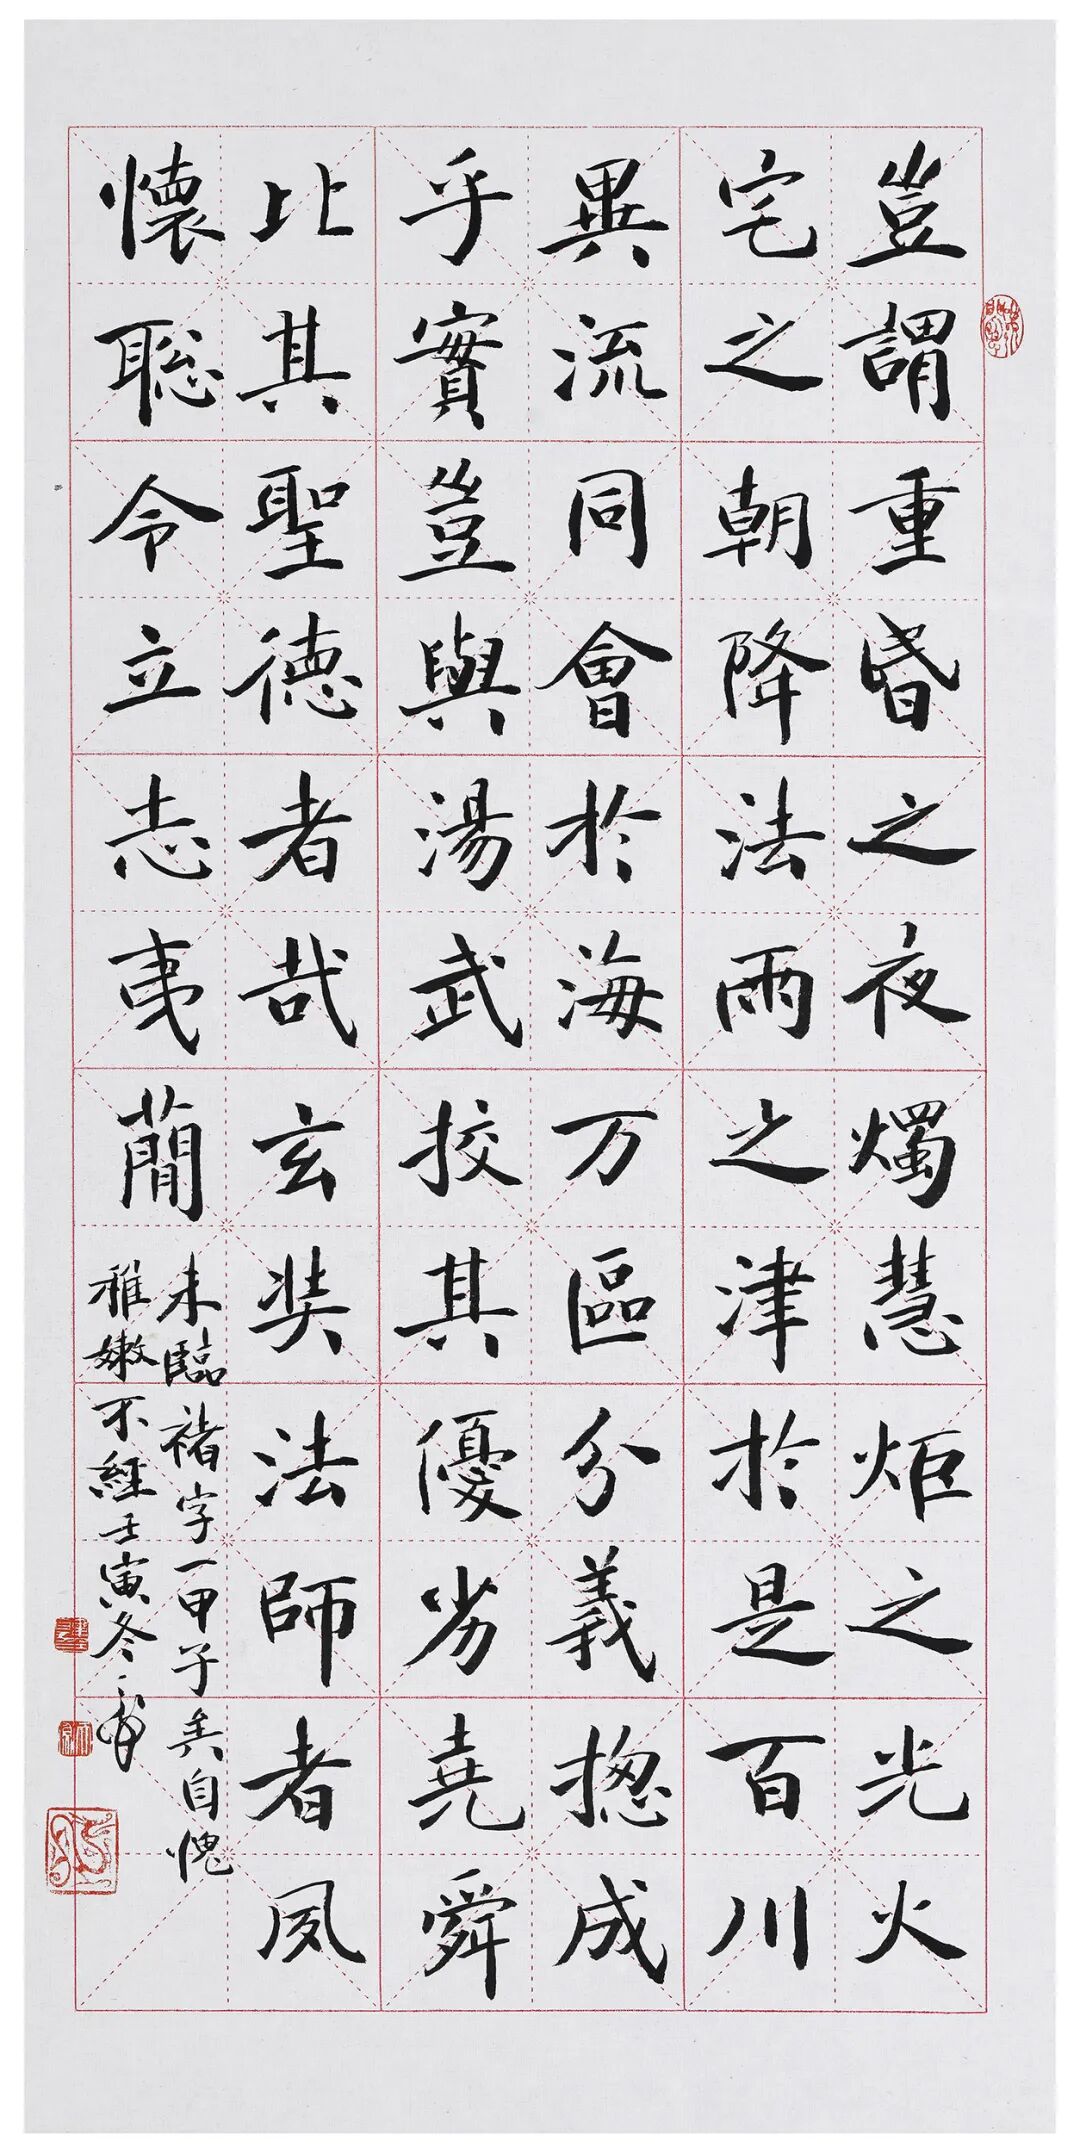 豈謂重昏之夜燭慧炬之光火
宅之朝降法雨之津於是百川
異流同會於海万區分義揔成
乎實豈與湯武挍其優劣堯舜
比其聖德者哉玄奘法師者夙
懷聡令立志夷蕳
未臨褚字一甲子矣自愧
稚嫩不經壬寅冬